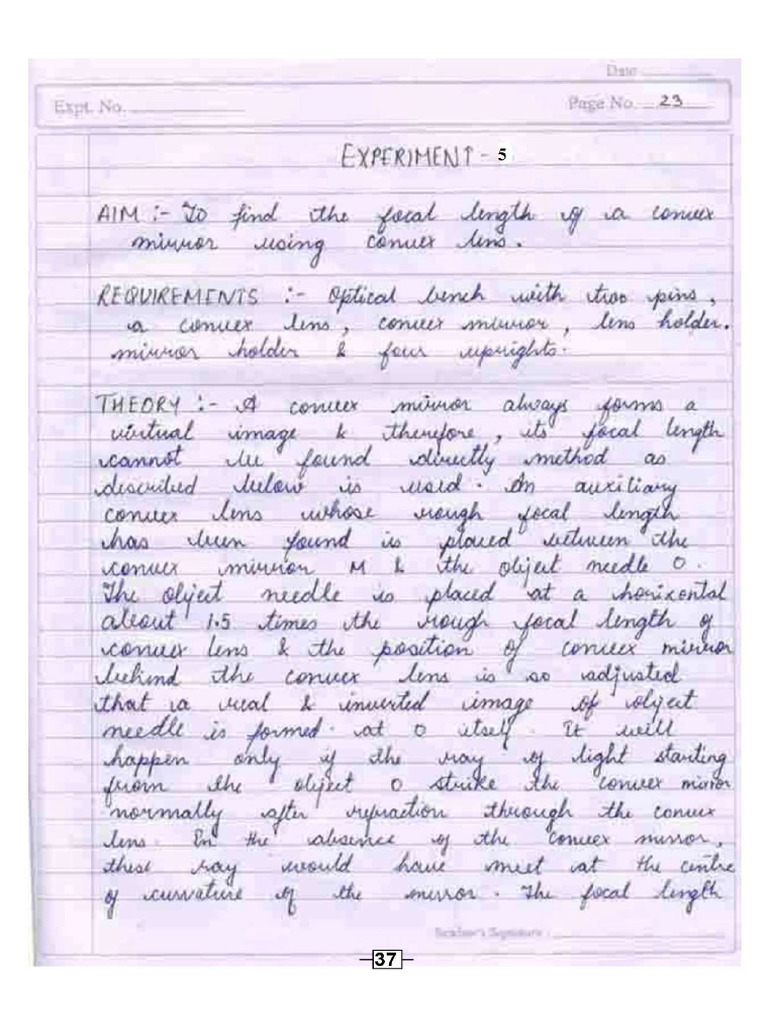 Date
Expt. No.
Page No. 23
EXPERIMENT - 5
AIM :- To find the focal length of a convex
mirror using convex lens.
REQUIREMENTS :- Optical bench with two pins,
a convex lens, convex mirror, lens holder.
mirror holder & four uprights.
THEORY :- A convex mirror always forms a
virtual image & therefore, its focal length
cannot be found directly method as
described below is used. An auxiliary
convex lens whose rough focal length
has been found is placed between the
convex mirror M & the object needle O.
The object needle is placed at a horizontal
about 1.5 times the rough focal length of
convex lens & the position of convex mirror
behind the convex lens is so adjusted
that a real & inverted image of object
needle is formed. at O itself. It will
happen only if the ray of light starting
from the object O strike the convex mirror
normally after refraction through the convex
lens. In the absence of the convex mirror,
these ray would have meet at the centre
of curvature of the mirror. The focal length
Teacher's Signature :
37